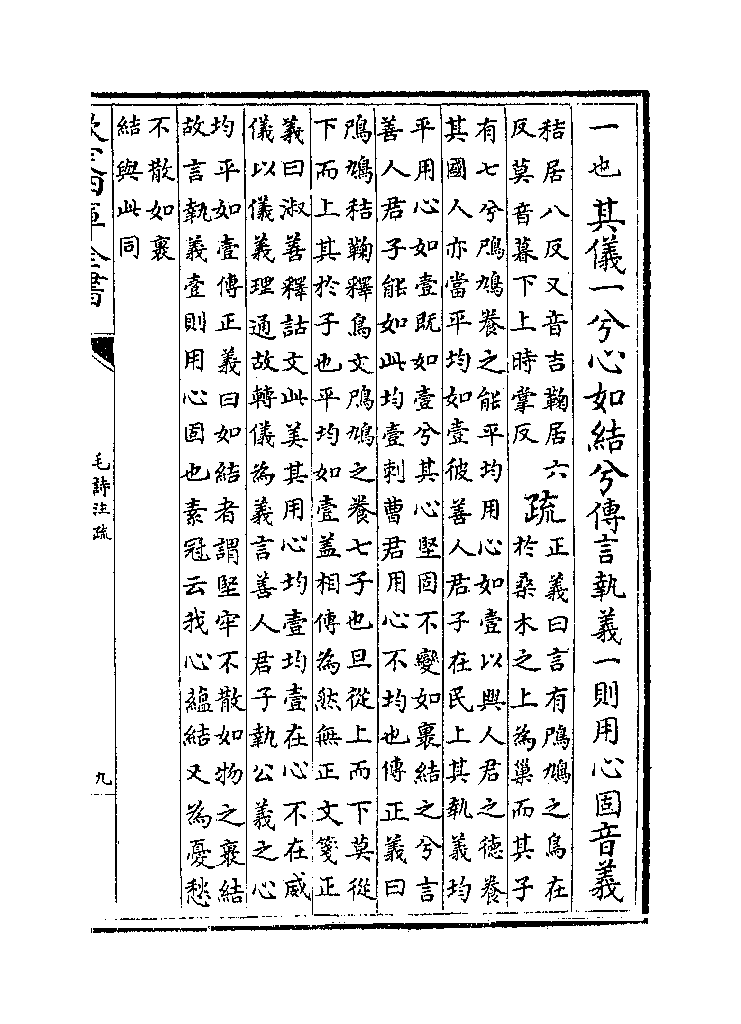 一也其儀一兮心如結兮傳言執義一則用心固音義
秸居八反又音吉鞠居六
反莫音暮下上時掌反
疏
正義曰言有鳲鳩之鳥在
於桑木之上為巢而其子
有七兮鳲鳩養之能平均用心如壹以興人君之德養
其國人亦當平均如壹彼善人君子在民上其執義均
平用心如壹既如壹兮其心堅固不變如裹結之兮言
善人君子能如此均壹刺曹君用心不均也傳正義曰
鳲鳩秸鞠釋鳥文鳲鳩之養七子也旦從上而下莫從
下而上其於子也平均如壹蓋相傳為然無正文箋正
義曰淑善釋詁文此美其用心均壹均壹在心不在威
儀以儀義理通故轉儀為義言善人君子執公義之心
均平如壹傳正義曰如結者謂堅牢不散如物之裹結
故言執義壹則用心固也素冠云我心蘊結又為憂愁
不散如裹
結與此同
欽定四庫全書
毛詩注疏
九